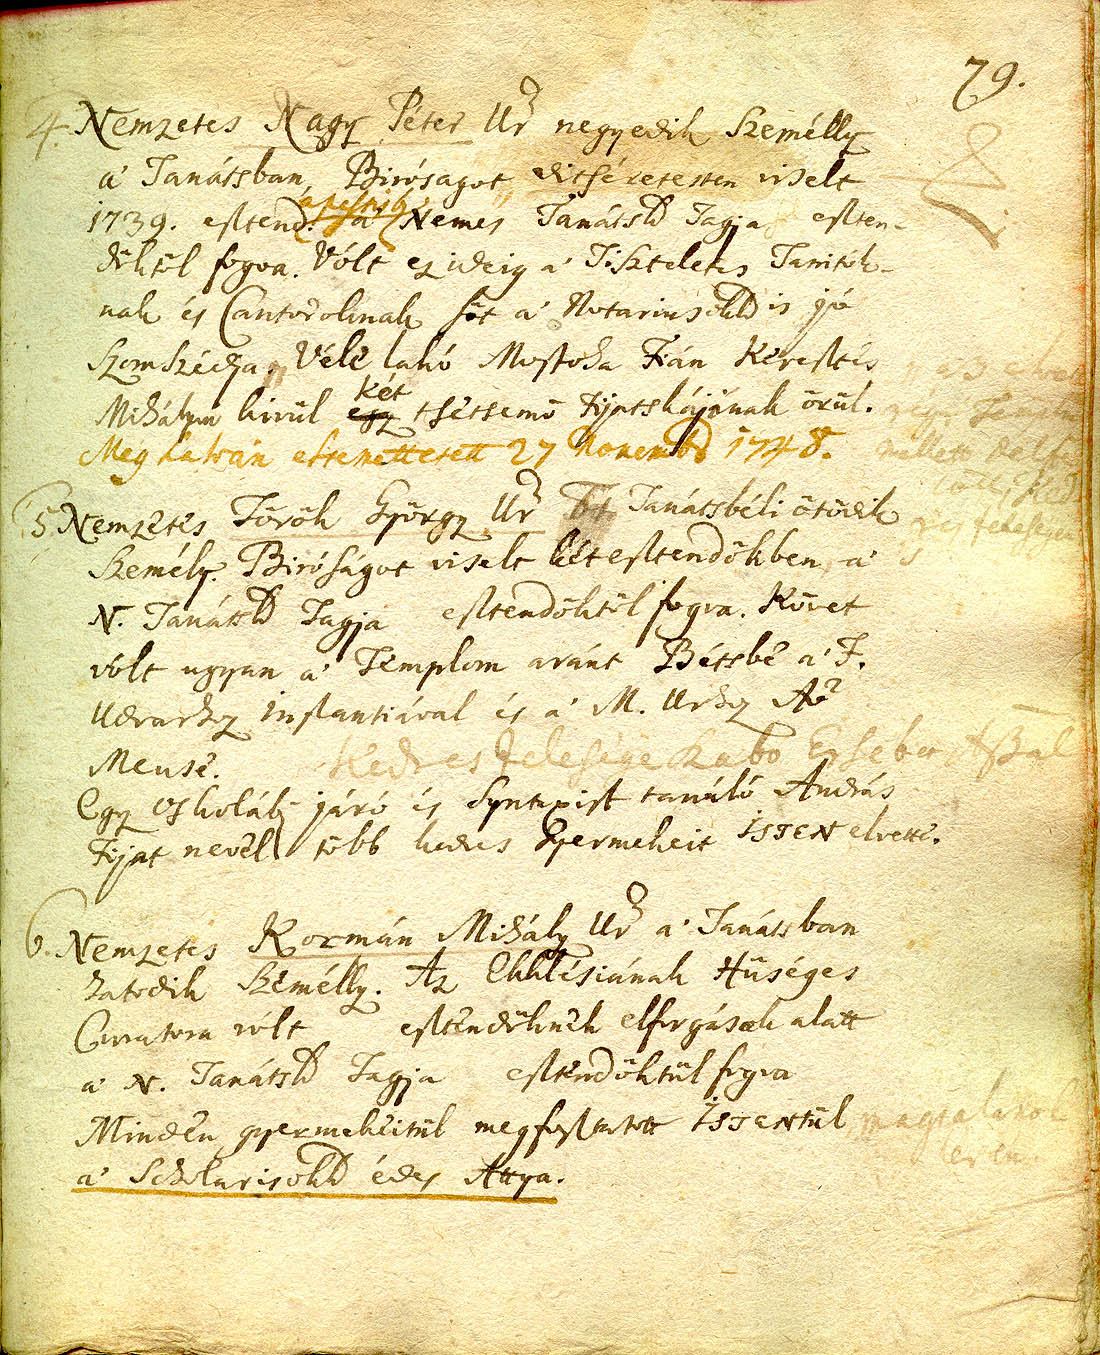 79.
4. Nemzetes Nagy Péter Ur negyedik Személly
a' Tanátsban, Biróságot ditséretessen viselt
1739. esztend. a' Nemes Tanátsb Tagja eszten-
dőktöl fogva. Vólt ez ideig a' Tiszteletes Tanitók-
nak és Cantoroknak söt a' Notariusokb is jó
Szomszédja. Véle lakó Mostoha Fián Keresztes
két
Mihályon kivül egy tsetsemő Fijatskájának örül.
Meg
27 Novemb 1748.
5. Nemzetes Török György Ur Tanátsbéli ötödik
Személy. Biróságot viselt két esztendőkben, a'
N. Tanátsb Tagja esztendőktöl fogva. Követ
vólt ugyan a' Templom aránt Bétsbe a' F.
Udvarhoz Instantiával és a' M. Urhoz
Mense.
Kedves felesége Szabo Ersebet
Egy Oskoláb járó és Syntaxist tanúló András
Fijat nevel, több kedves Gyermekeit ISTEN elvette.
6. Nemzetes Kormán Mihály Ur a' Tanátsban
hatodik Személly. Az Ekklésiának Hűséges
Curatora vólt esztendőknek elforgások alatt
a' N. Tanátsb Tagja esztendőktül fogva
Minden gyermekeitül megfosztatott ISTENtül
a' Scholarisokb édes Attya.